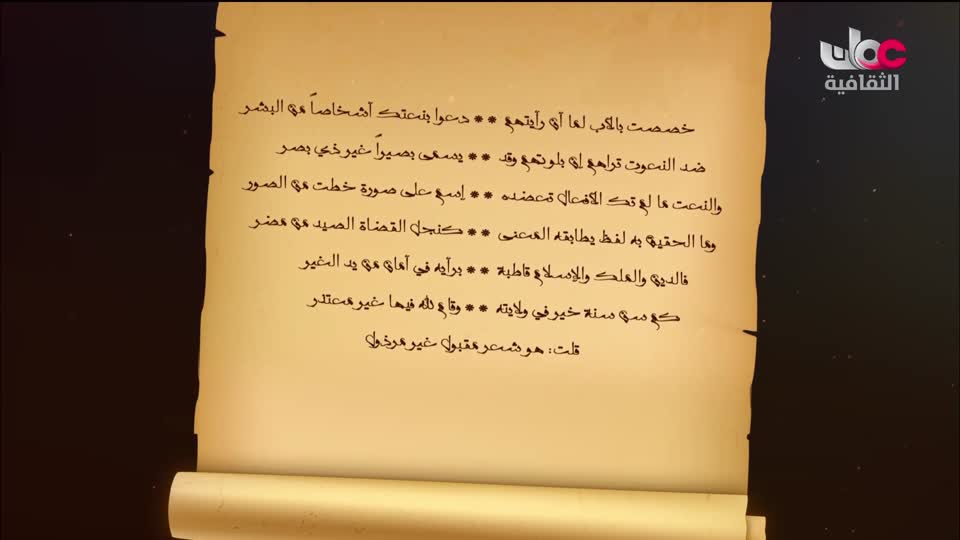 عمان
الثقافية
خصصت بالأب لما أن رأيتهم ** دعوا بنعتك أشخاصاً من البشر
ضد النعوت تراهم إن بلوتهم وقد ** يسمى بصيراً غير ذي بصر
والنعت ما لم تك الأفعال تعضده ** إسم على صورة خطت من الصور
وما الحقيق به لفظ يطابقه المعنى ** كنجل القضاة الصيد من مضر
فالدين والملك والإسلام قاطبة ** برأيه في أمان من يد الغير
كم سن سنة خير في ولايته ** وقام لله فيها غير معتذر
قلت: هو شعر مقبول غير مرذول